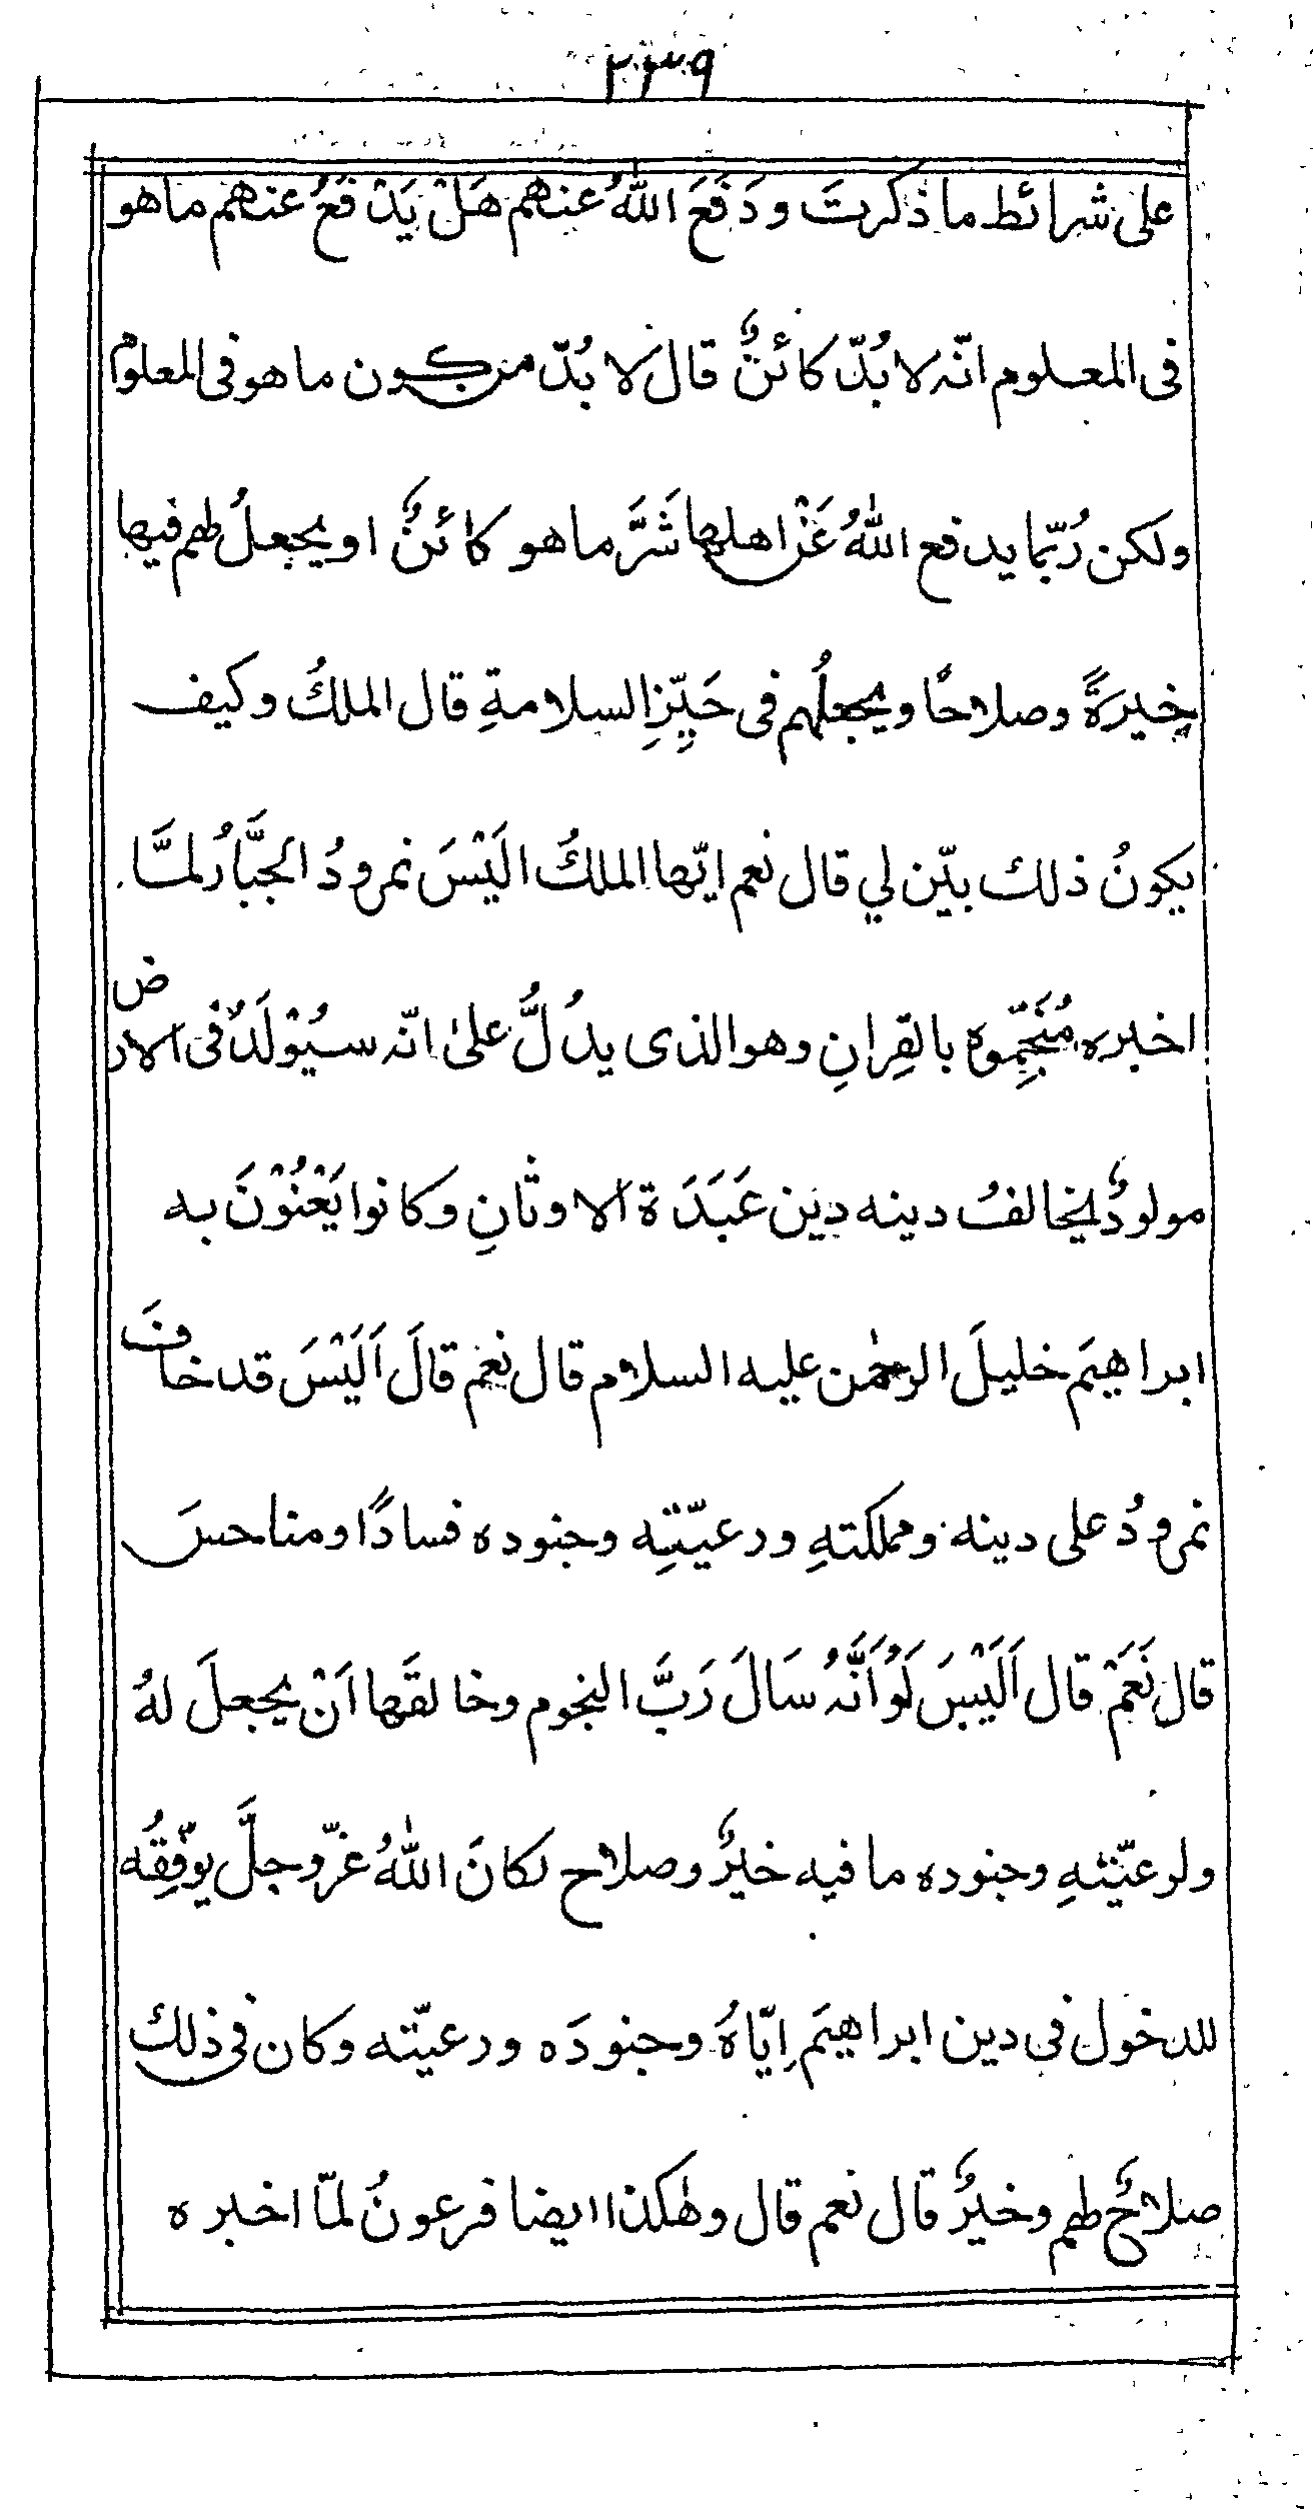 ٢٣٩
على شرائط ما ذكرتَ ودَفَعَ اللّٰهُ عنهم هَلْ يَدْفَعُ عنهم ما هو
فى المعلوم انّه لا بُدّ كائنٌ قال لا بُدّ من كون ما هو فى المعلوم
ولكن رُبّما يدفع اللّٰهُ عَنْ اهلها شَرَّ ما هو كائنٌ او يجعلُ لهم فيها
خيرَةً وصلاحًا ويجعلُهم فى حَيّزِ السلامةِ قال الملكُ وكيف
يكونُ ذلك بيّن لي قال نعم ايّها الملكُ الَيْسَ نمرودُ الجبَّارُ لمَّا
اخبره مُنَجِّموه بالقِرانِ وهو الذى يدُلُّ علىٰ انّه سيُوْلَدُ فى الارض
مولودٌ يخالفُ دينه دين عَبَدَة الاوثانِ وكانوا يَعْنُوْنَ به
ابراهيمَ خليلَ الرحمٰن عليه السلام قال نعم قالَ اَلَيْسَ قد خافَ
نمرودُ على دينه ومملكتهِ ورعيّتِه وجنوده فسادًا ومناحسَ
قال نَعَمْ قال اَلَيْسَ لَوْ اَنَّهُ سَالَ رَبَّ النجوم وخالقَها اَنْ يجعلَ لهُ
ولرعيّتهِ وجنوده ما فيه خيرٌ وصلاح لكانَ اللّٰهُ عزّ وجلَّ يوّفِقُه
للدخول فى دين ابراهيمَ اِيّاهُ وجنودَه ورعيّته وكان فى ذلك
صلاحٌ لهم وخيرٌ قال نعم قال وهٰكذا ايضا فرعونُ لمّا اخبره